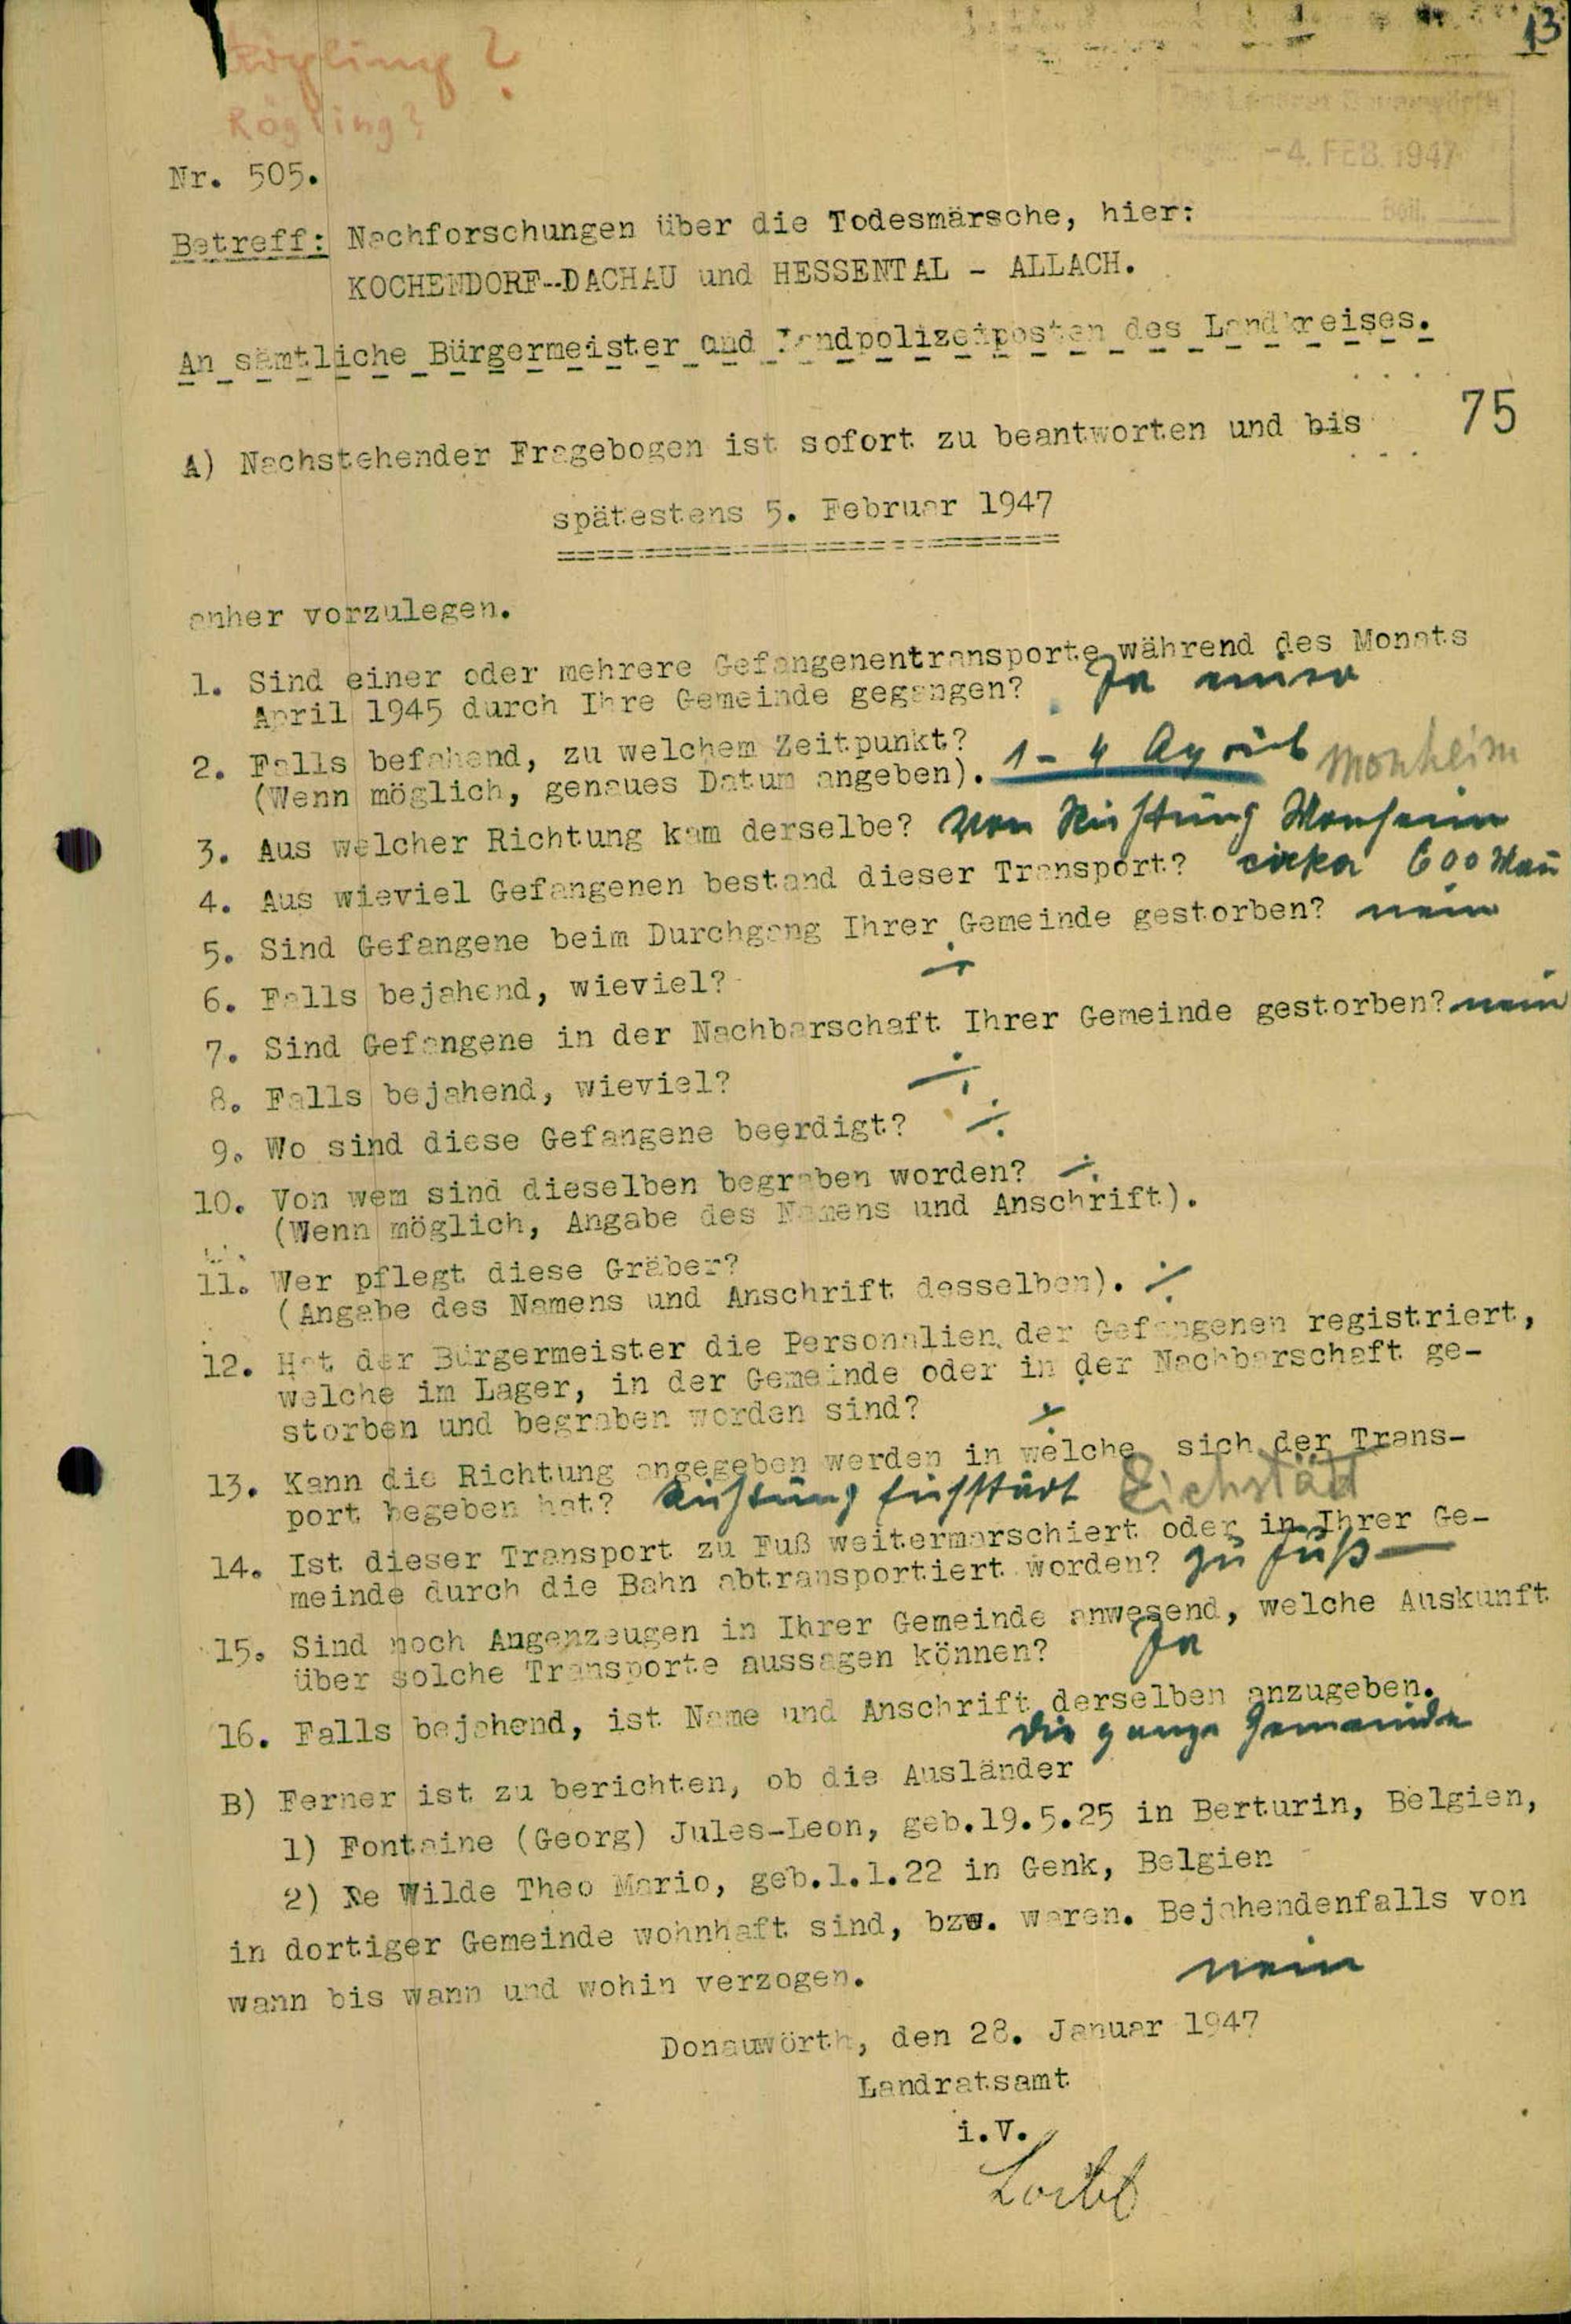 13
Rögling?
Rögling?
Der Landrat Donauwörth
-4. FEB. 1947
Beil.
Nr. 505.
Betreff: Nachforschungen über die Todesmärsche, hier:
KOCHENDORF--DACHAU und HESSENTAL - ALLACH.
An sämtliche Bürgermeister und Landpolizeiposten des Landkreises.
75
A) Nachstehender Fragebogen ist sofort zu beantworten und bis
spätestens 5. Februar 1947
anher vorzulegen.
1. Sind einer oder mehrere Gefangenentransporte während des Monats
April 1945 durch Ihre Gemeinde gegangen? Ja einer
2. Falls befahend, zu welchem Zeitpunkt?
(Wenn möglich, genaues Datum angeben). 1 - 4 April Monheim
3. Aus welcher Richtung kam derselbe? Von Richtung Monheim
4. Aus wieviel Gefangenen bestand dieser Transport? cirka 600 Mann
5. Sind Gefangene beim Durchgang Ihrer Gemeinde gestorben? nein
6. Falls bejahend, wieviel? ÷
7. Sind Gefangene in der Nachbarschaft Ihrer Gemeinde gestorben? nein
8. Falls bejahend, wieviel? ÷
9. Wo sind diese Gefangene beerdigt? ÷
10. Von wem sind dieselben begraben worden? ÷
(Wenn möglich, Angabe des Namens und Anschrift).
11. Wer pflegt diese Gräber?
(Angabe des Namens und Anschrift desselben). ÷
12. Hat der Bürgermeister die Personalien der Gefangenen registriert,
welche im Lager, in der Gemeinde oder in der Nachbarschaft ge-
storben und begraben worden sind? ÷
13. Kann die Richtung angegeben werden in welche sich der Trans-
port begeben hat? Richtung Eichstätt Eichstätt
14. Ist dieser Transport zu Fuß weitermarschiert oder in Ihrer Ge-
meinde durch die Bahn abtransportiert worden? zu Fuß
15. Sind noch Augenzeugen in Ihrer Gemeinde anwesend, welche Auskunft
über solche Transporte aussagen können? Ja
16. Falls bejahend, ist Name und Anschrift derselben anzugeben.
Die ganze Gemeinde
B) Ferner ist zu berichten, ob die Ausländer
1) Fontaine (Georg) Jules-Leon, geb.19.5.25 in Berturin, Belgien,
2) De Wilde Theo Mario, geb.1.1.22 in Genk, Belgien
in dortiger Gemeinde wohnhaft sind, bzw. waren. Bejahendenfalls von
wann bis wann und wohin verzogen. nein
Donauwörth, den 28. Januar 1947
Landratsamt
i.V.
Loibl